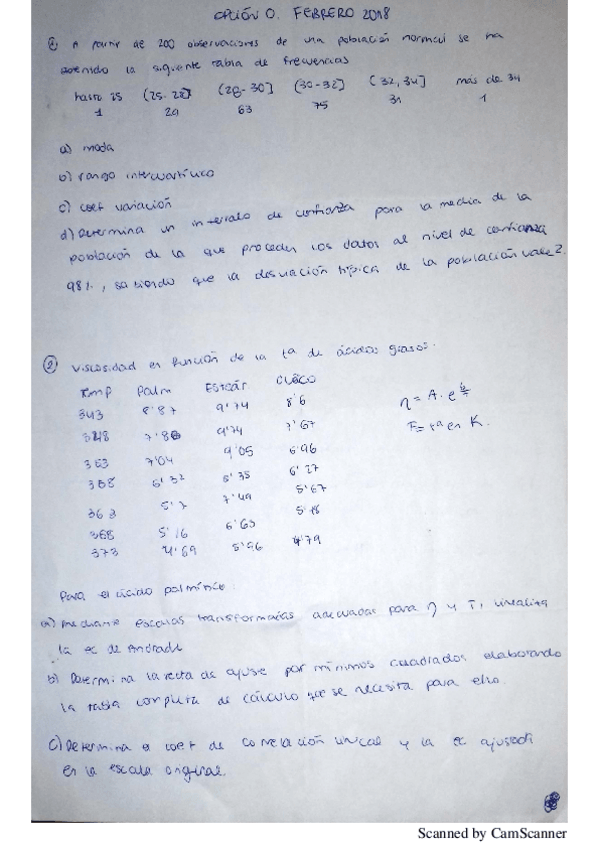 OPCIÓN O. FEBRERO 2018
① A partir de 200 observaciones de una población normal se ha
obtenido la siguiente tabla de frecuencias
hasta 25 (25-28] (28-30] (30-32] (32,34] más de 34
1 29 63 75 31 1
a) moda
b) rango intercuartílico
c) coef variación
d) Determina un intervalo de confianza para la media de la
población de la que proceden los datos al nivel de confianza
98%, sabiendo que la desviación típica de la población vale 2.
② Viscosidad en función de la tª de ácidos grasos:
Tmp Palm Esteár Oléico
343 8'87 9'74 8'6
348 7'86 9'74 7'67
353 7'04 9'05 6'96
358 6'32 8'35 6'27
363 5'7 7'49 5'67
368 5'16 6'65 5'18
373 4'69 5'96 4'79
η = A · e
T = tª en K.
Para el ácido palmítico:
a) mediante escalas transformadas adecuadas para η y T, linealiza
la ec de Andrade
b) Determina la recta de ajuste por mínimos cuadrados elaborando
la tabla completa de cálculo que se necesita para ello.
c) Determina el coef de correlación lineal y la ec ajustada
en la escala original.
Scanned by CamScanner